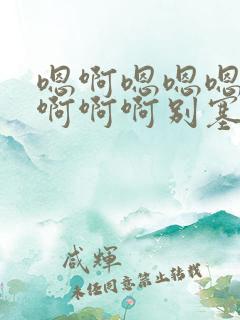 嗯啊嗯嗯嗯
啊啊啊别塞
咸輝
未任同意禁止转载